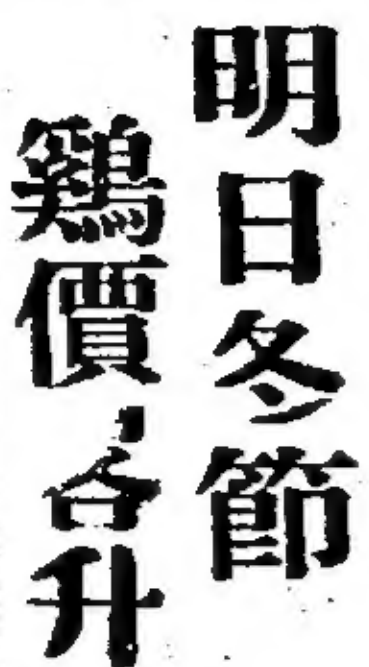 明日冬節
鷄價畧升